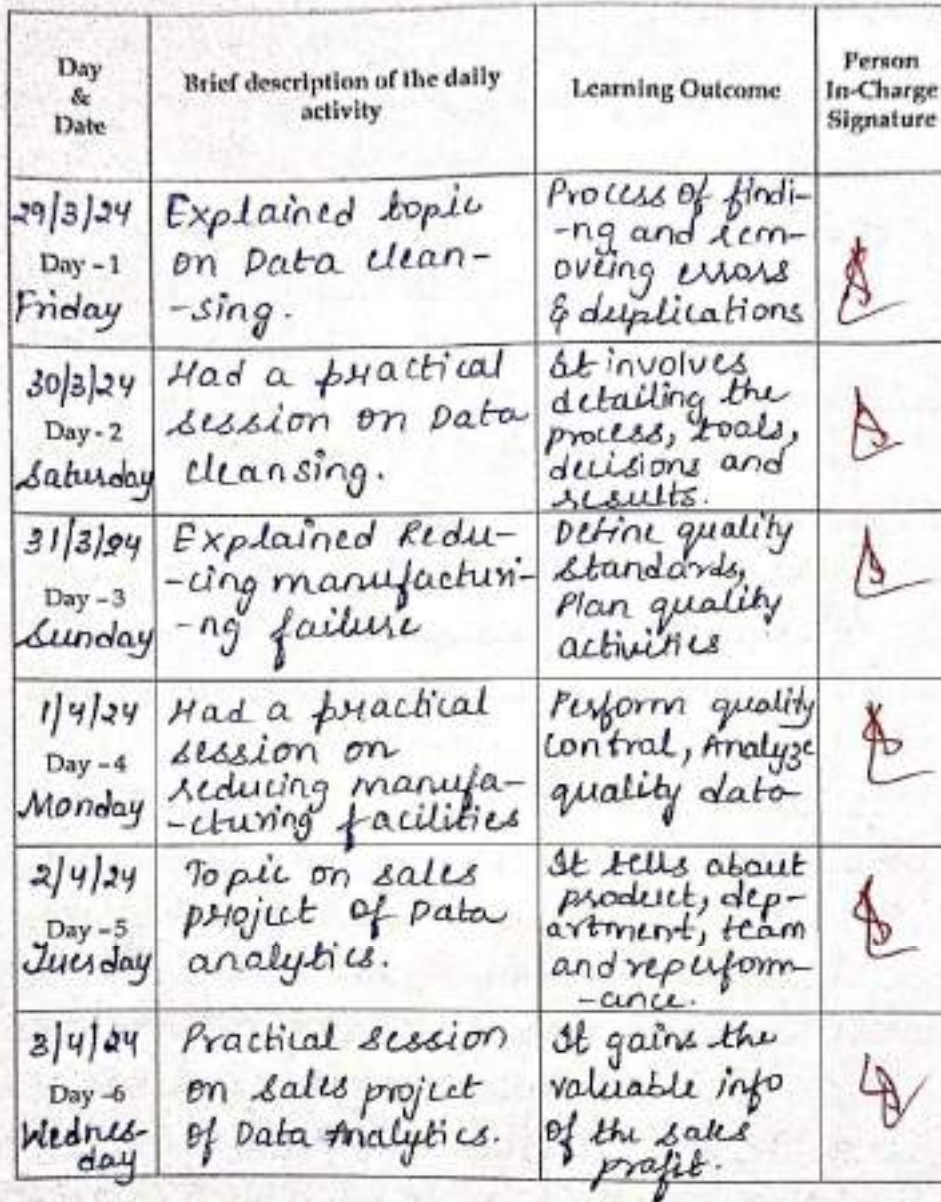 Day
&
Date
Brief description of the daily
activity
Learning Outcome
Person
In-Charge
Signature
29/3/24
Day - 1
Friday
Explained topic
on Data clean-
-sing.
Process of findi-
-ng and rem-
oveing errors
& duplications
30/3/24
Day - 2
Saturday
Had a practical
session on Data
cleansing.
It involves
detailing the
process, tools,
decisions and
results.
31/3/24
Day - 3
Sunday
Explained Redu-
-cing manufacturi-
-ng failure
Define quality
standards,
Plan quality
activities
1/4/24
Day - 4
Monday
Had a practical
session on
reducing manufa-
-cturing facilities
Perform quality
control, Analyze
quality data
2/4/24
Day - 5
Tuesday
Topic on sales
project of Data
analytics.
It tells about
product, dep-
artment, team
and reperform-
-ance.
3/4/24
Day - 6
Wednes-
day
Practical session
on sales project
of Data Analytics.
It gains the
valuable info
of the sales
profit.